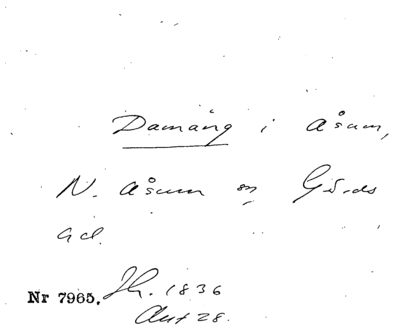 Damäng i Åsum,
N. Åsum sn, Gärds
hd.
Nr 7965. Jh. 1836
Akt 28.